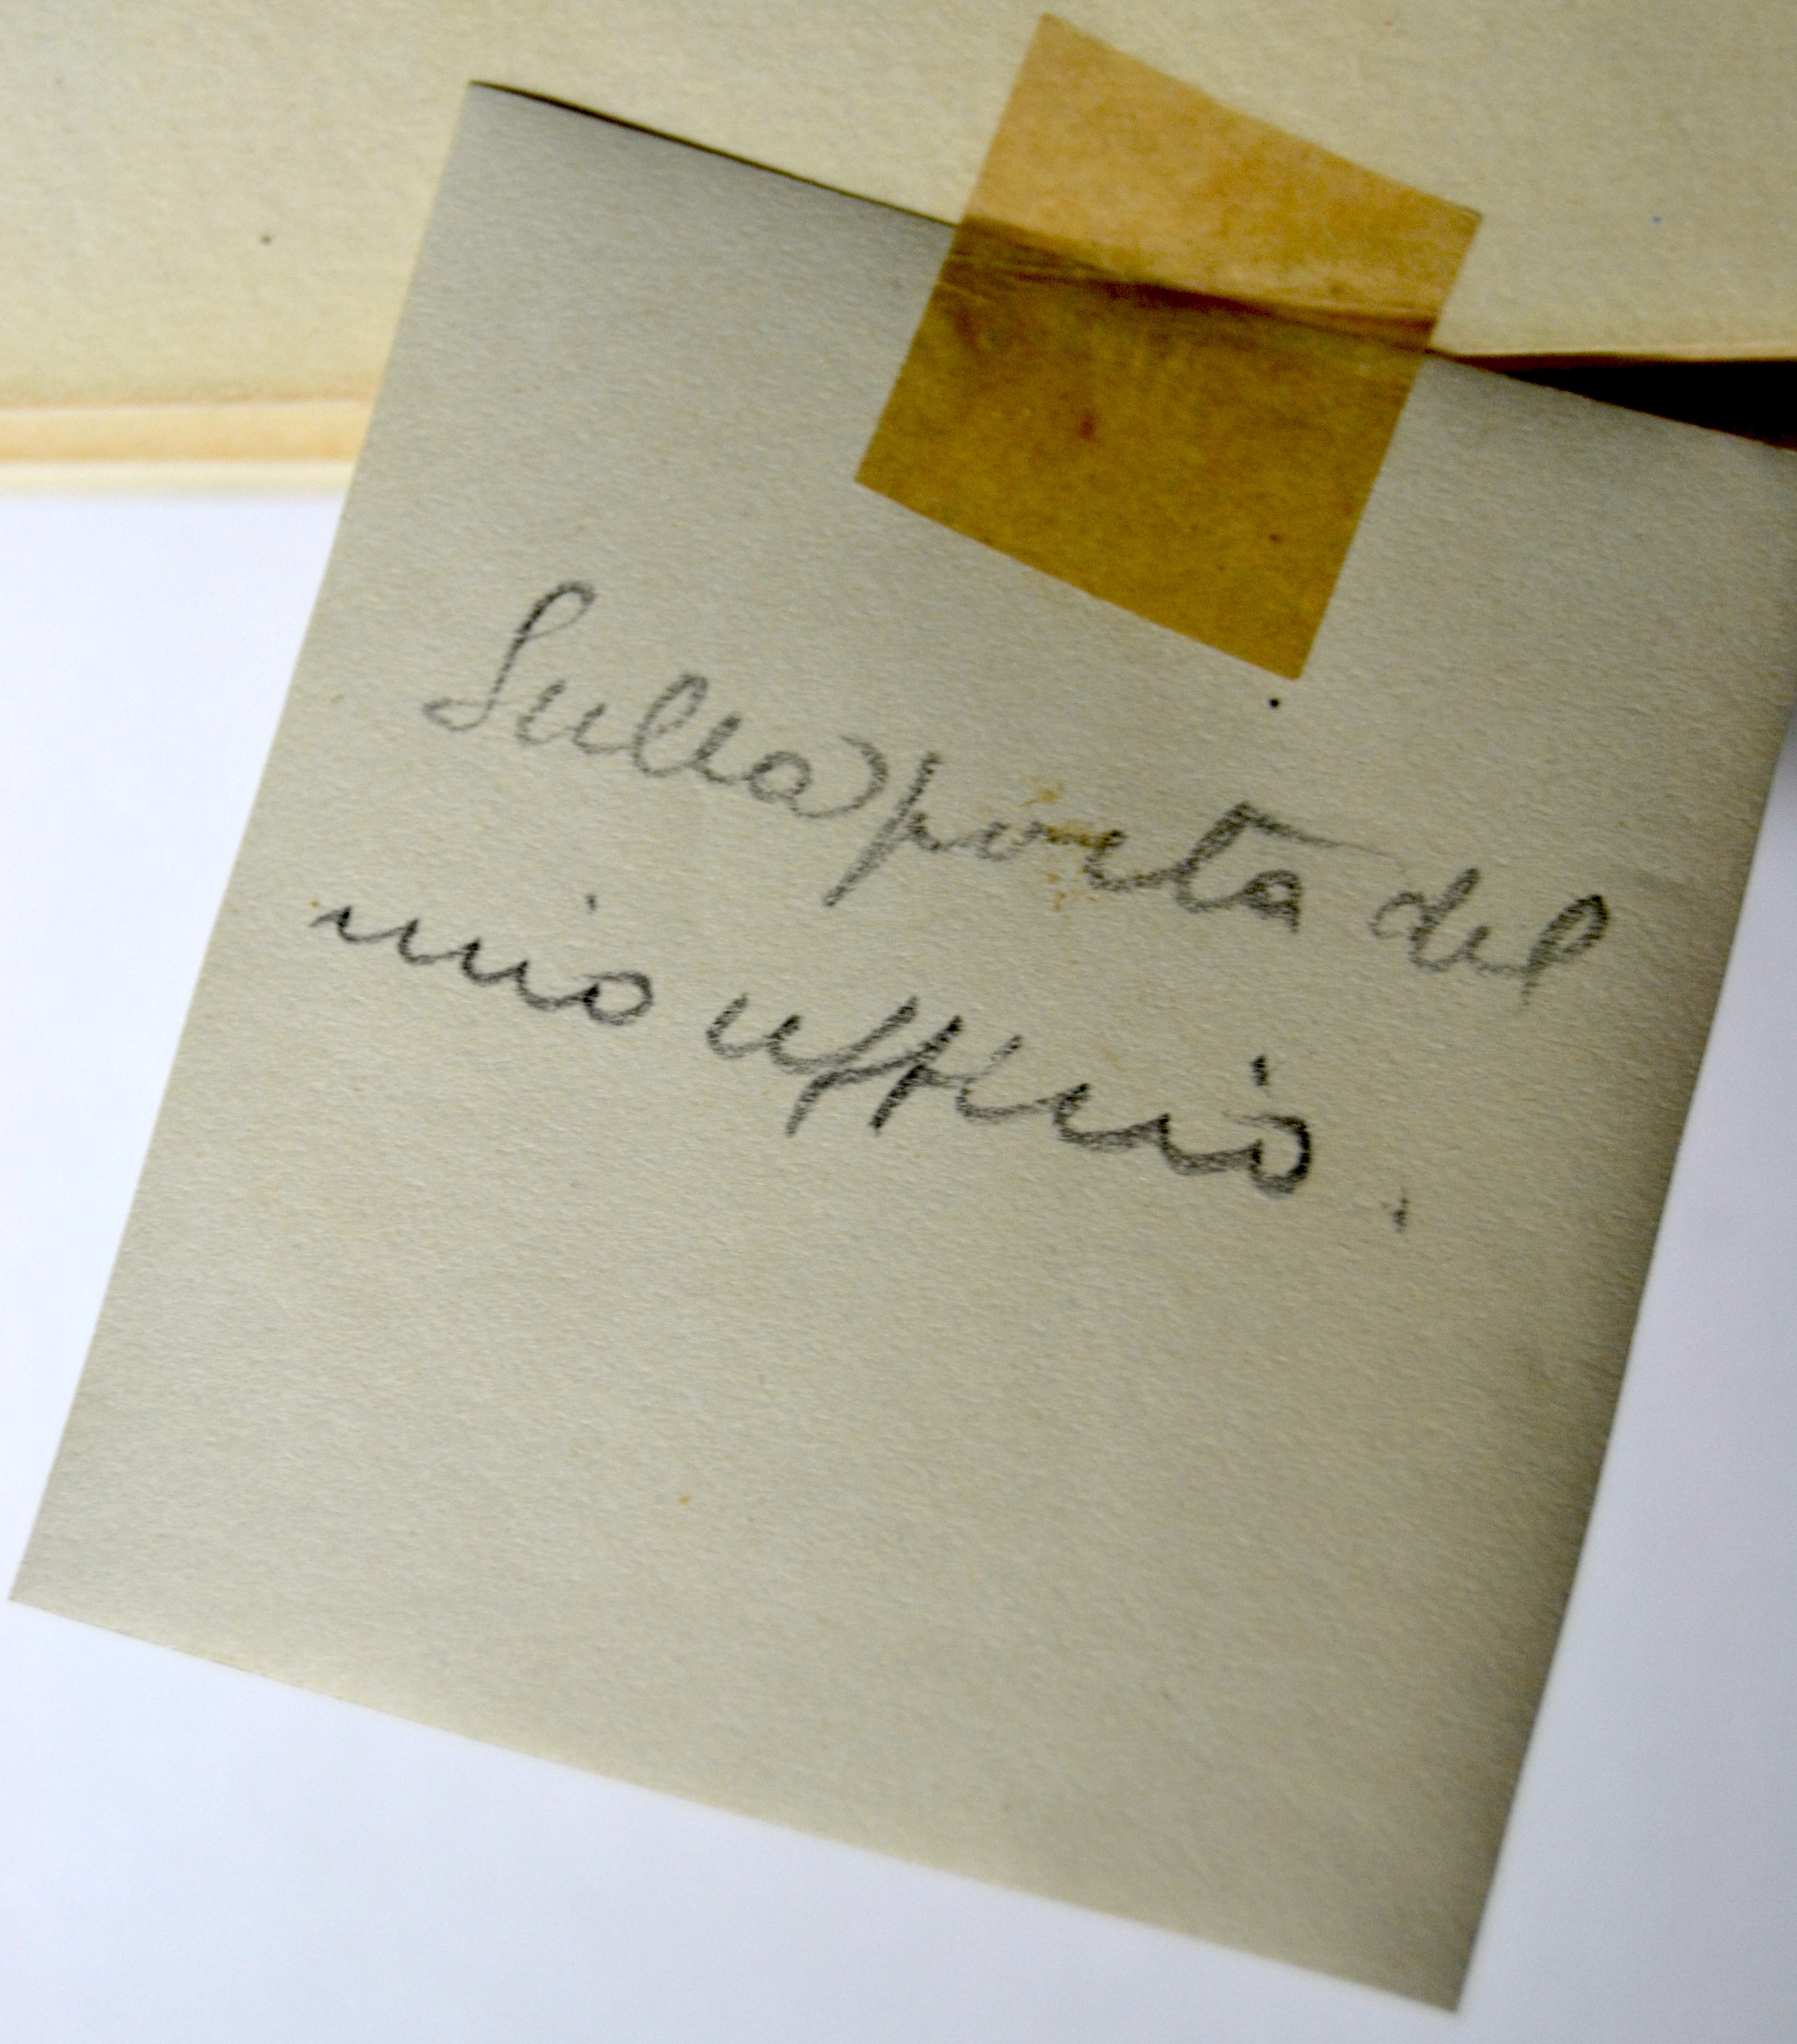 Sulla porta del
mio ufficio.